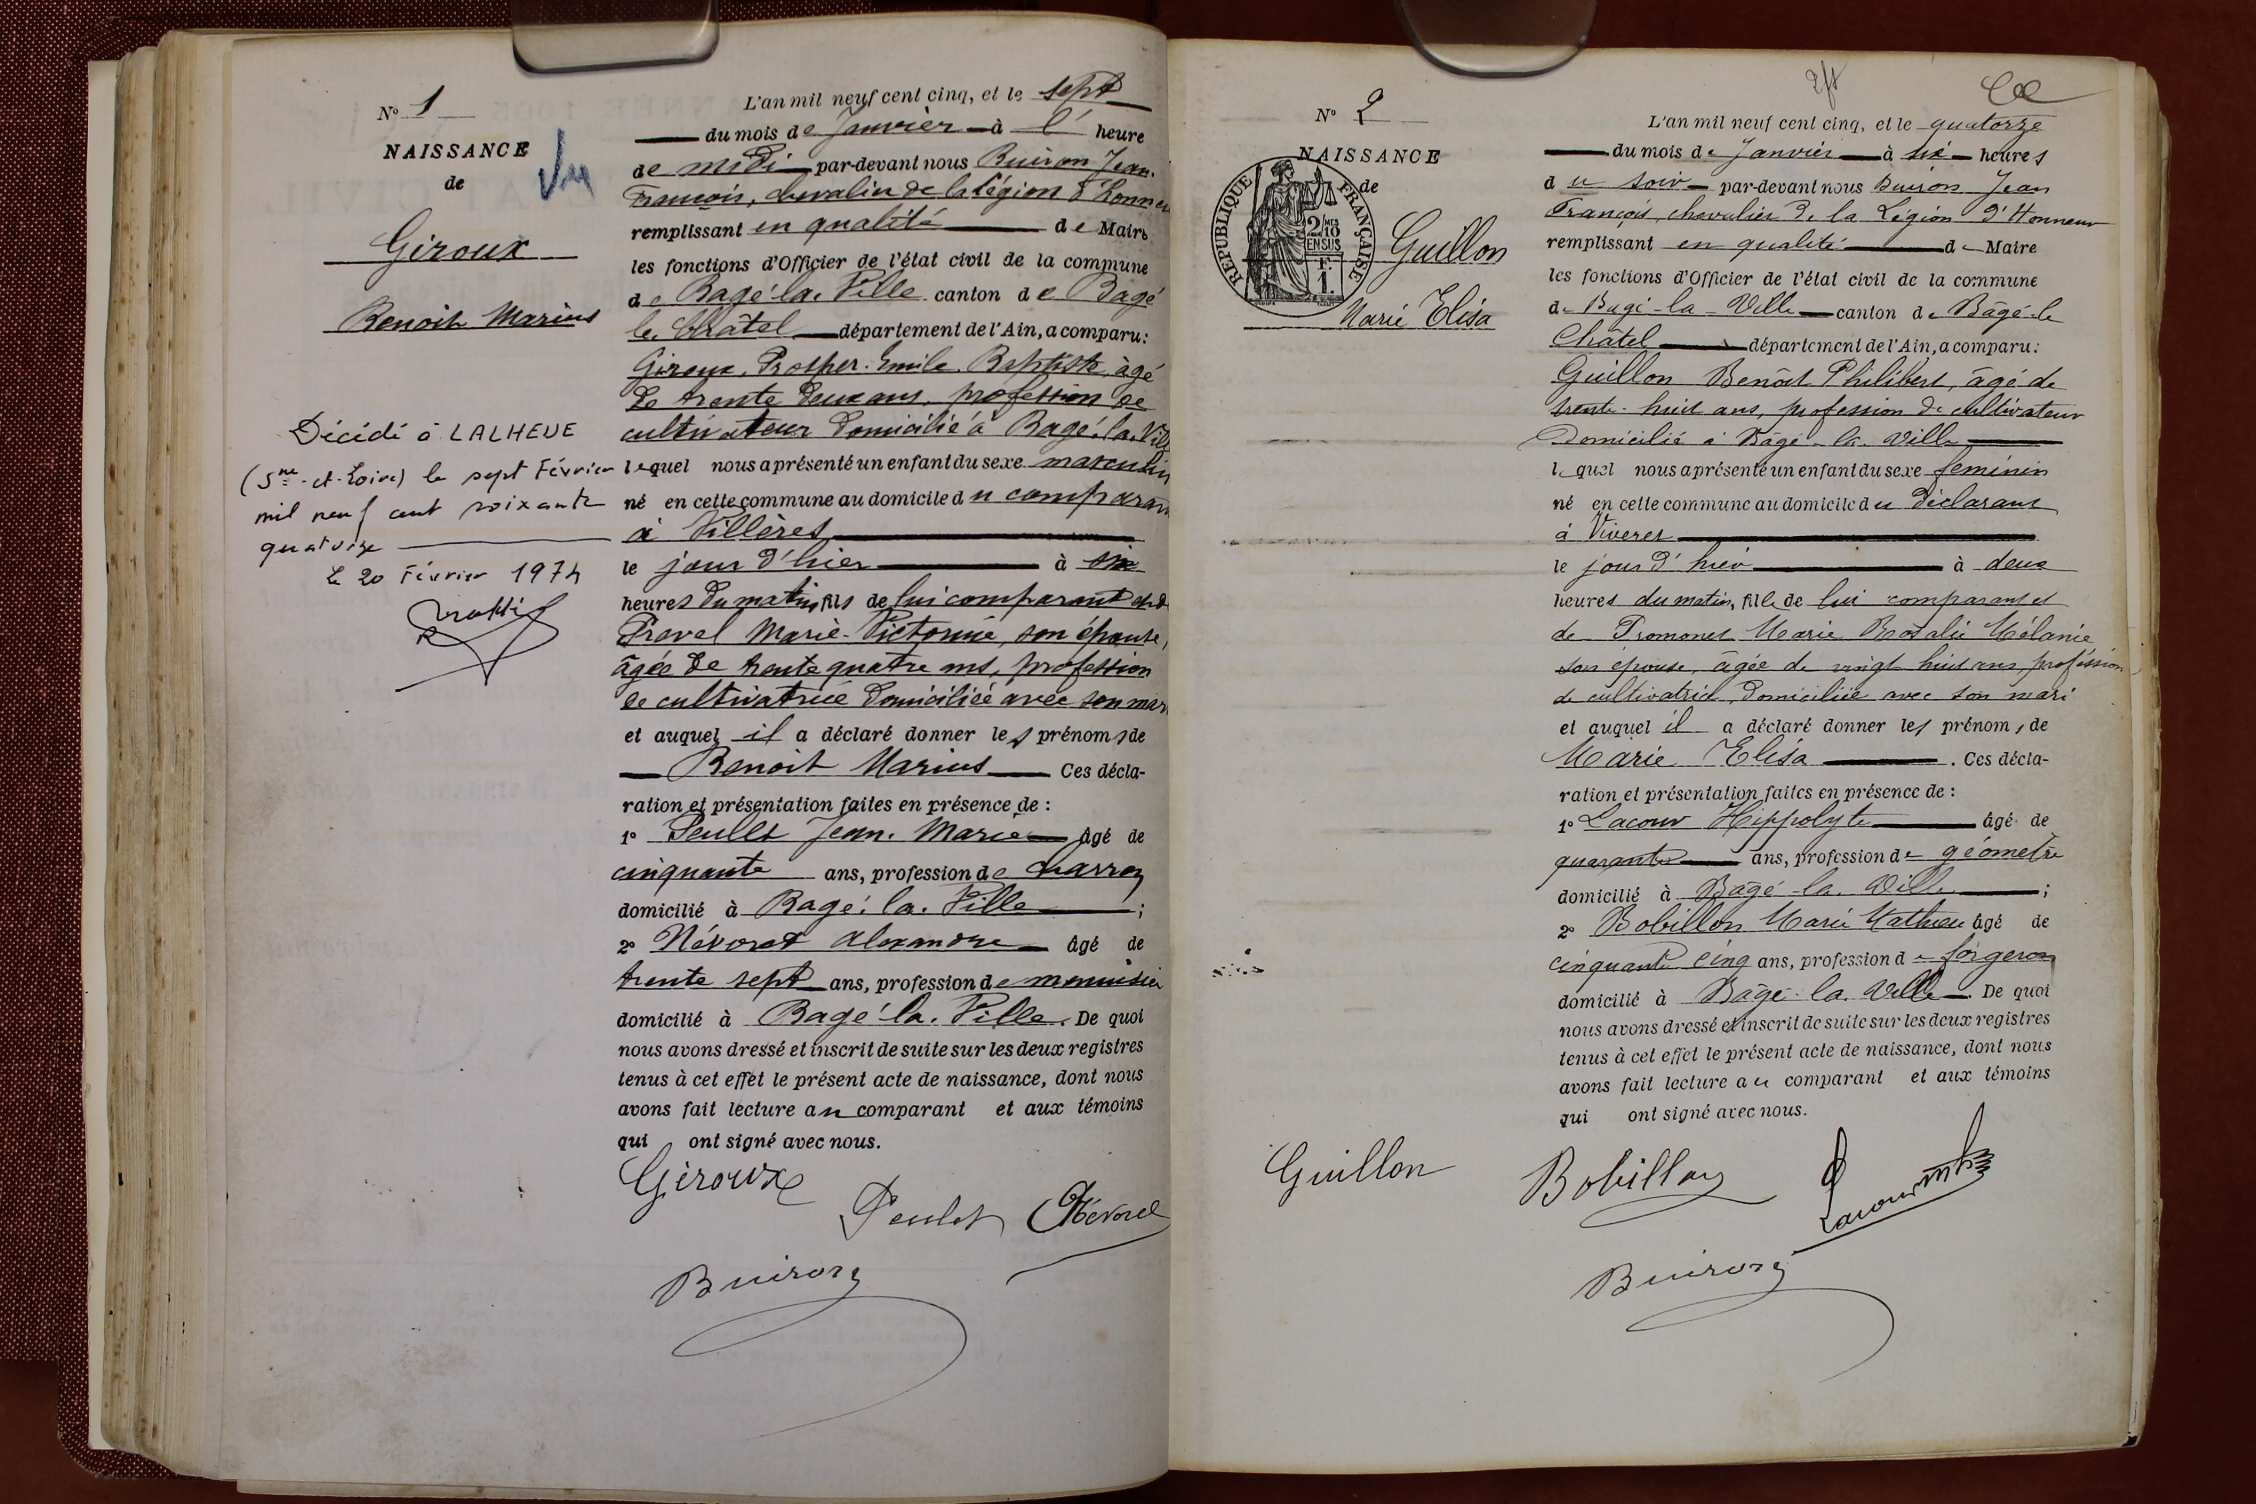 N° 1
NAISSANCE
de
Vu
Giroux
Benoit Marius
Décédé à LALHEUE
(Sne-et-Loire) le sept Février
mil neuf cent soixante
quatorze
le 20 Février 1974
L'an mil neuf cent cinq, et le sept
du mois de Janvier à l' heure
de midi par-devant nous Buiron Jean.
François, chevalier de la Légion d'honneur
remplissant en qualité de Maire
les fonctions d'Officier de l'état civil de la commune
de Bagé-la-Ville canton de Bagé
le Châtel département de l'Ain, a comparu:
Giroux, Prosper Emile Baptiste, âgé
de trente deux ans, profession de
cultivateur domicilié à Bagé-la-Ville
lequel nous a présenté un enfant du sexe masculin
né en cette commune au domicile du comparant
à Villères
le jour d'hier à six
heures du matin, fils de lui comparant et de
Pravel Marie-Victorine, son épouse,
âgée de trente quatre ans, profession
de cultivatrice domiciliée avec son mari
et auquel il a déclaré donner les prénoms de
Benoit Marius Ces décla-
ration et présentation faites en présence de :
1° Peullet Jean-Marie âgé de
cinquante ans, profession de charron
domicilié à Bagé-la-Ville ;
2° Névoret Alexandre âgé de
trente sept ans, profession de menuisier
domicilié à Bagé-la-Ville. De quoi
nous avons dressé et inscrit de suite sur les deux registres
tenus à cet effet le présent acte de naissance, dont nous
avons fait lecture au comparant et aux témoins
qui ont signé avec nous.
Giroux
Peulet Névoret
Buiron
N° 2
NAISSANCE
de
RÉPUBLIQUE FRANÇAISE
2/10
EN SUS
F.
1.
Guillon
Marie Elisa
L'an mil neuf cent cinq, et le quatorze
du mois de Janvier à six heures
du soir par-devant nous Buiron Jean
François, chevalier de la Légion d'Honneur
remplissant en qualité de Maire
les fonctions d'Officier de l'état civil de la commune
de Bagé-la-Ville canton de Bâgé-le
Châtel département de l'Ain, a comparu:
Guillon Benoît Philibert, âgé de
trente-huit ans, profession de cultivateur
domicilié à Bâgé-la-Ville
lequel nous a présenté un enfant du sexe féminin
né en cette commune au domicile du déclarant
à Viveret
le jour d'hier à deux
heures du matin, fille de lui comparant et
de Promonet Marie Rosalie Mélanie
son épouse, âgée de vingt huit ans, profession
de cultivatrice, domiciliée avec son mari
et auquel il a déclaré donner les prénoms de
Marie Elisa . Ces décla-
ration et présentation faites en présence de :
1° Lacour Hippolyte âgé de
quarante ans, profession de géomètre
domicilié à Bâgé-la-Ville ;
2° Bobillon Marie Mathieu âgé de
cinquante cinq ans, profession de forgeron
domicilié à Bâgé-la-Ville. De quoi
nous avons dressé et inscrit de suite sur les deux registres
tenus à cet effet le présent acte de naissance, dont nous
avons fait lecture au comparant et aux témoins
qui ont signé avec nous.
Guillon Bobillon Lacour
Buiron